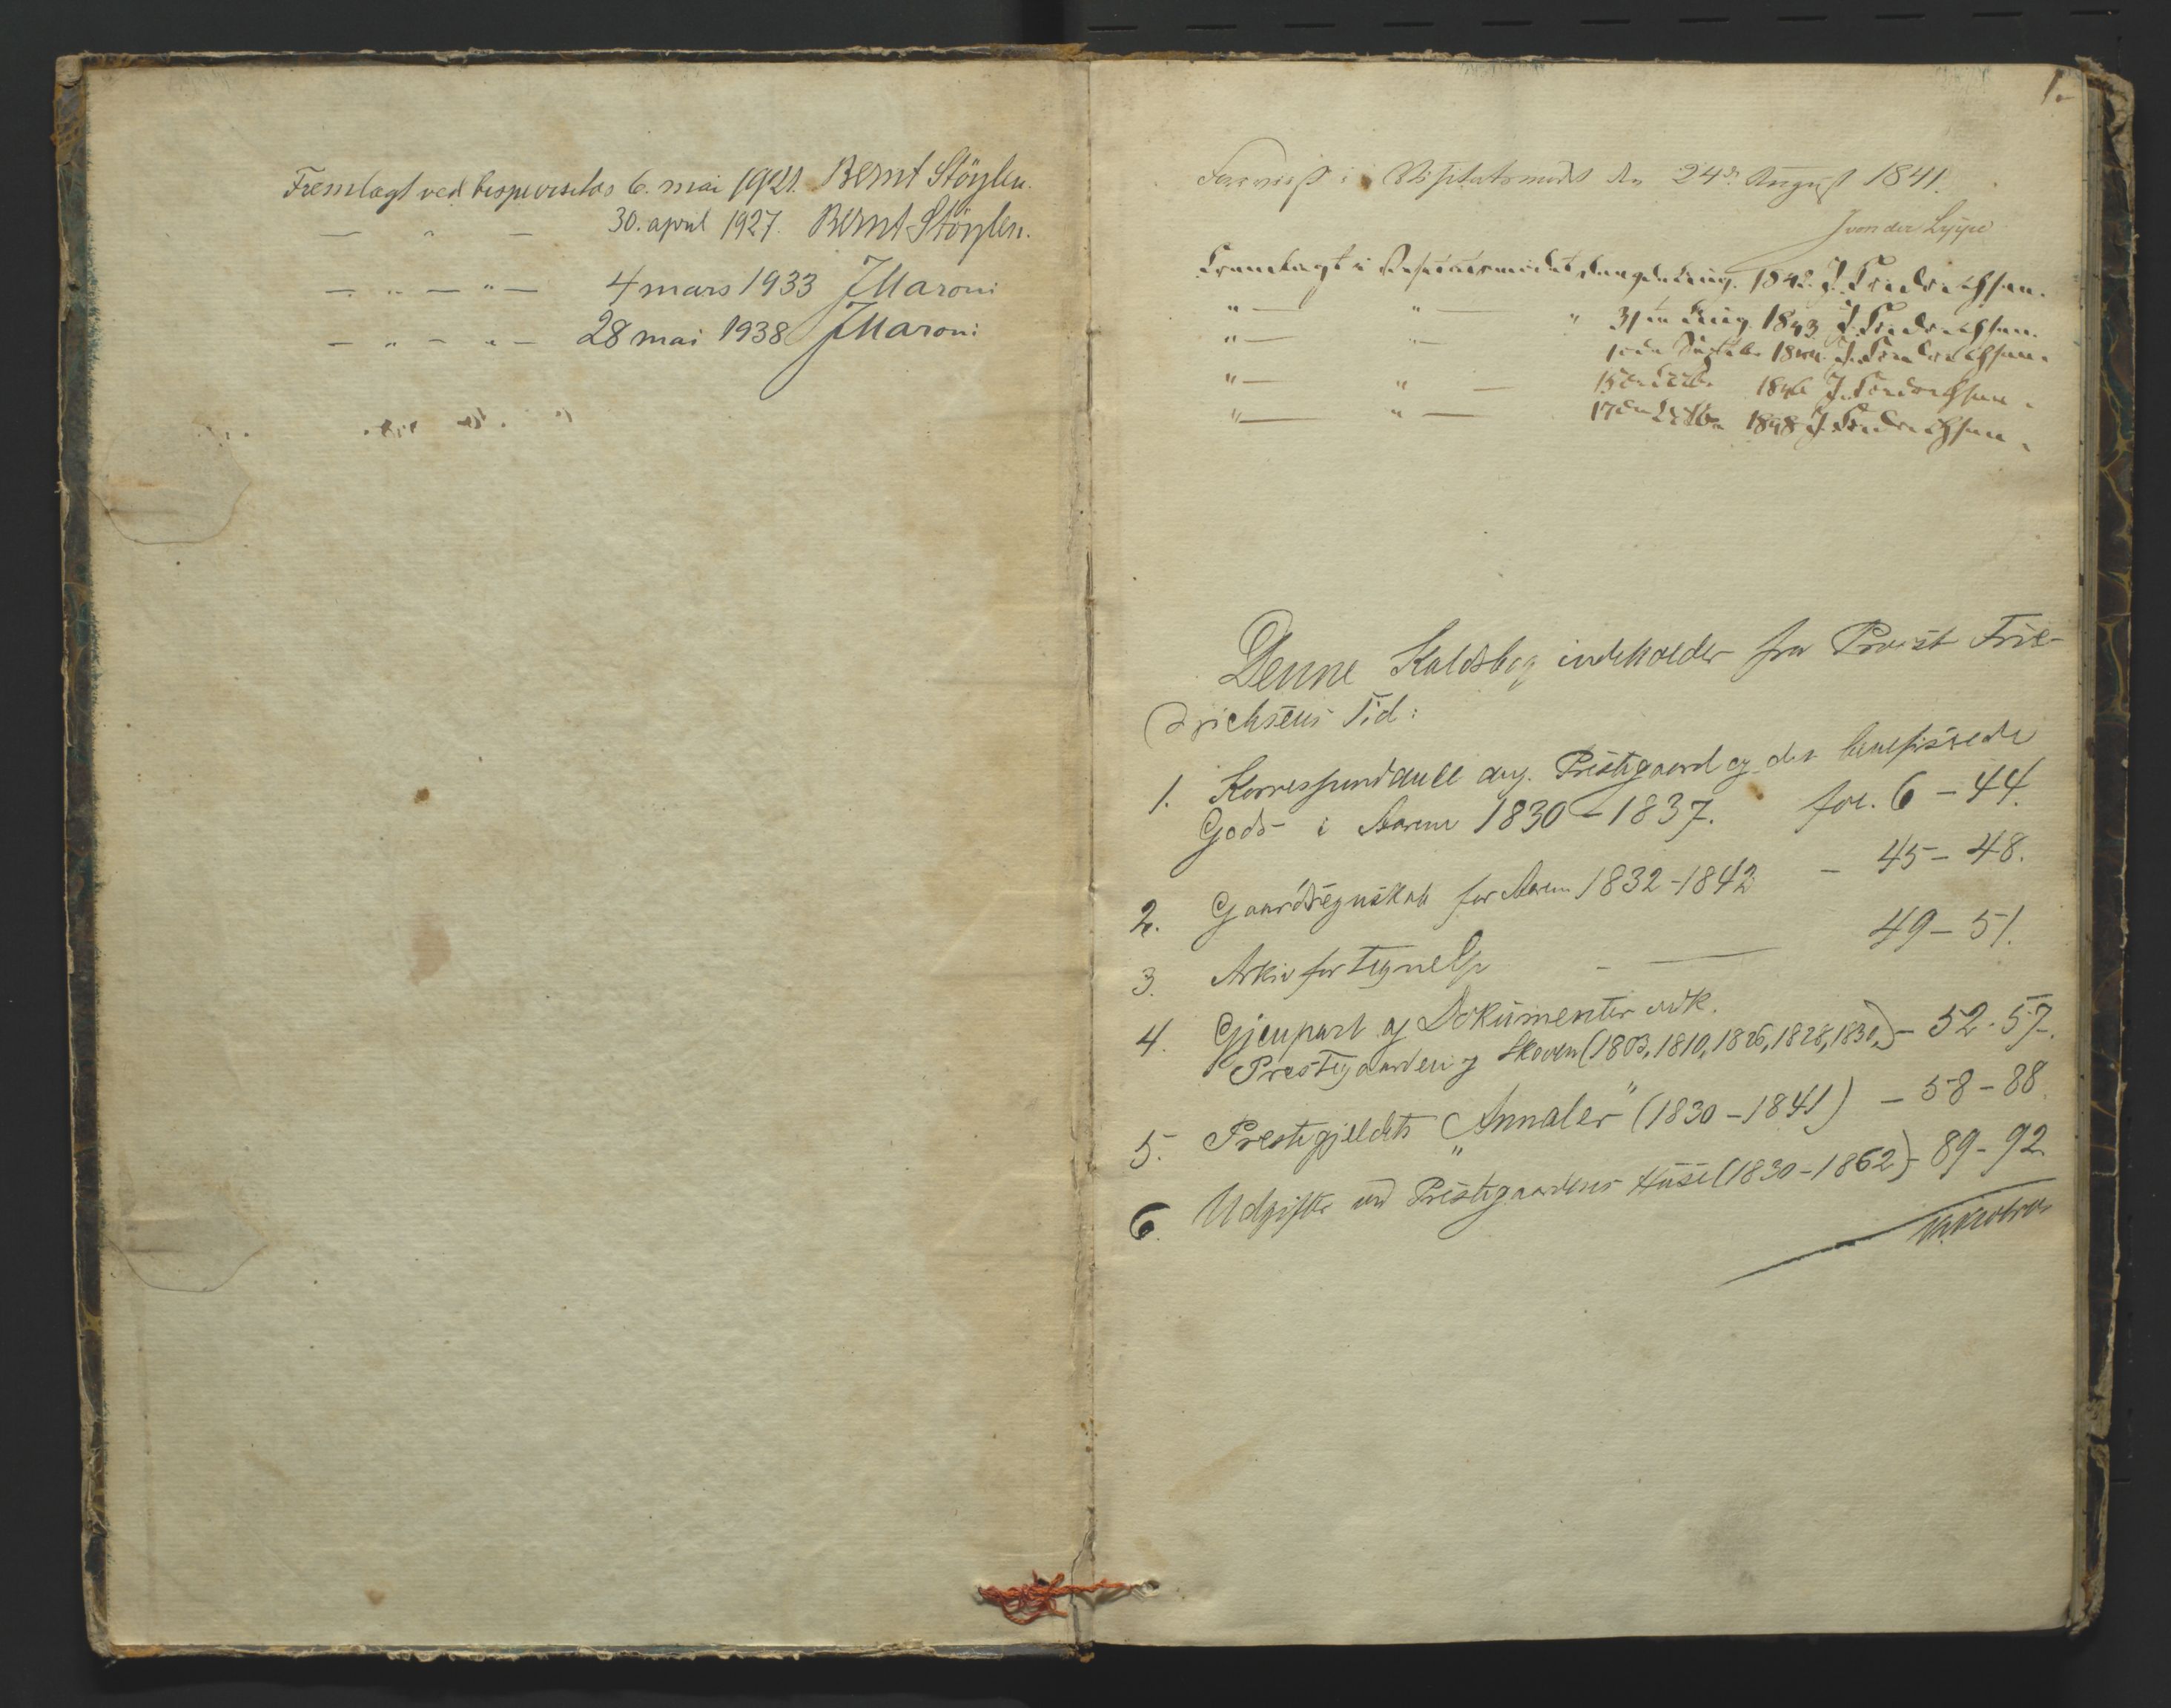 Fremlagt ved bispevisitas 6. mai 1921. Bernt Støylen.
— " — 30. april 1927. Bernt Støylen.
— " — " — 4 mars 1933 JMaroni
— " — " — 28 mai 1938 JMaroni
1.
Foreviist i Visitatsmødet den 24de August 1841.
J von der Lippe
Fremlagt i Visitatsmødet den Aug. 1842. J. Friedrichsen.
" — " — " 31te Aug. 1843 J. Friedrichsen.
" — " — 1844. J. Friedrichsen.
" — " — 15de 1846 J. Friedrichsen.
" — " — 17de 1848 J. Friedrichsen.
Denne Kaldsbog indeholder fra Provst Frie-
drichsens Tid:
1. Korrespondance ang. Prestegaard og det beneficerede
Gods i Aarene 1830-1837. fol. 6-44.
2. Gaardsregnskab for Aarene 1832-1842 — 45-48.
3. Arkivfortegnelse — 49-51.
4. Gjenpart af Dokumenter vedk.
Prestegaarden og Skoven (1803, 1810, 1826, 1828, 1830,) - 52-57.
5. Prestegjeldets "Annaler" (1830-1841) - 58-88.
6. Udgifter ved Prestegaardens Huse (1830-1862) - 89-92